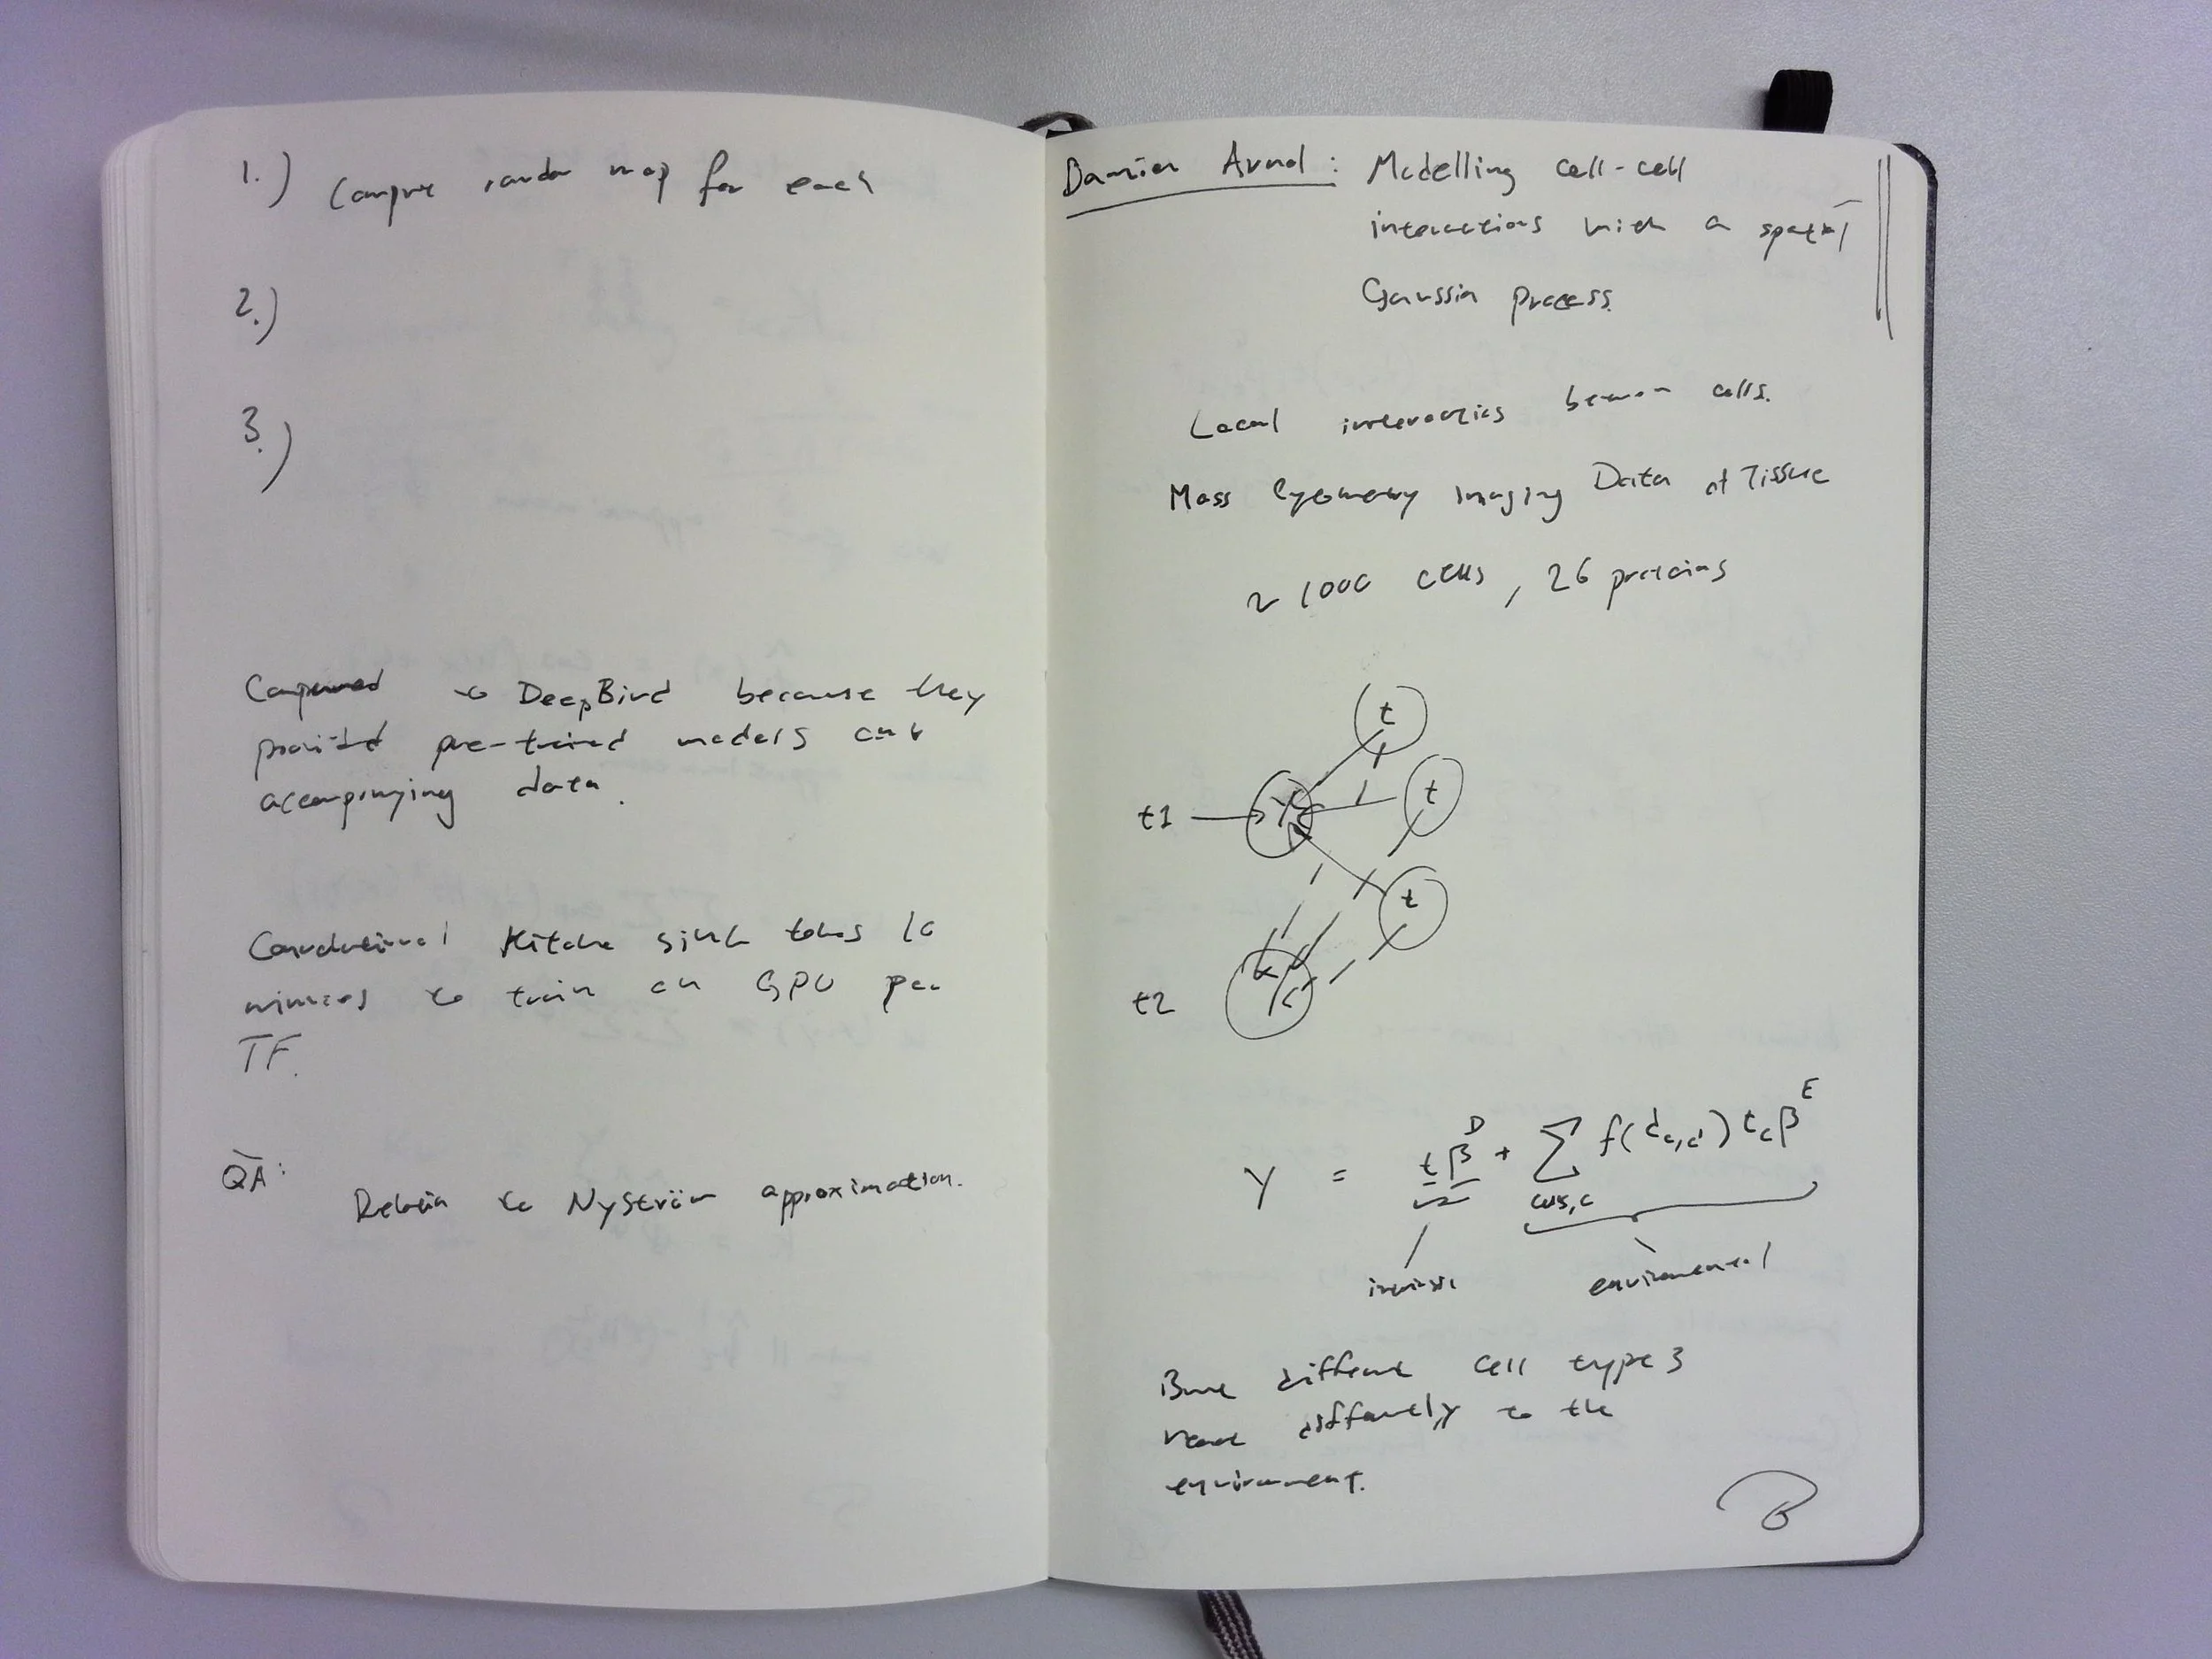 1.) Compute random map for each
2.)
3.)
Compared to DeepBind because they
provided pre-trained models and
accompanying data.
Convolutional Kitchen sink takes 10
minutes to train on GPU per
TF.
QA:
Relation to Nyström approximation.
Damien Arnol: Modelling cell-cell
interactions with a spatial
Gaussian process.
Local interactions between cells.
Mass Cytometry Imaging Data of Tissue
~ 1000 cells, 26 proteins
t
t
t1
Y
t
t2
Y = tβ^D + Σ f(d_c,c') t_c β^E
cells,c
intrinsic environmental
But different cell types
react differently to the
environment.